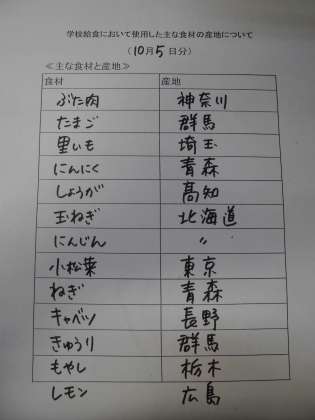 学校給食において使用した主な食材の産地について
(10月5日分)
≪主な食材と産地≫
食材 産地
ぶた肉 神奈川
たまご 群馬
里いも 埼玉
にんにく 青森
しょうが 高知
玉ねぎ 北海道
にんじん 〃
小松菜 東京
ねぎ 青森
キャベツ 長野
きゅうり 群馬
もやし 栃木
レモン 広島